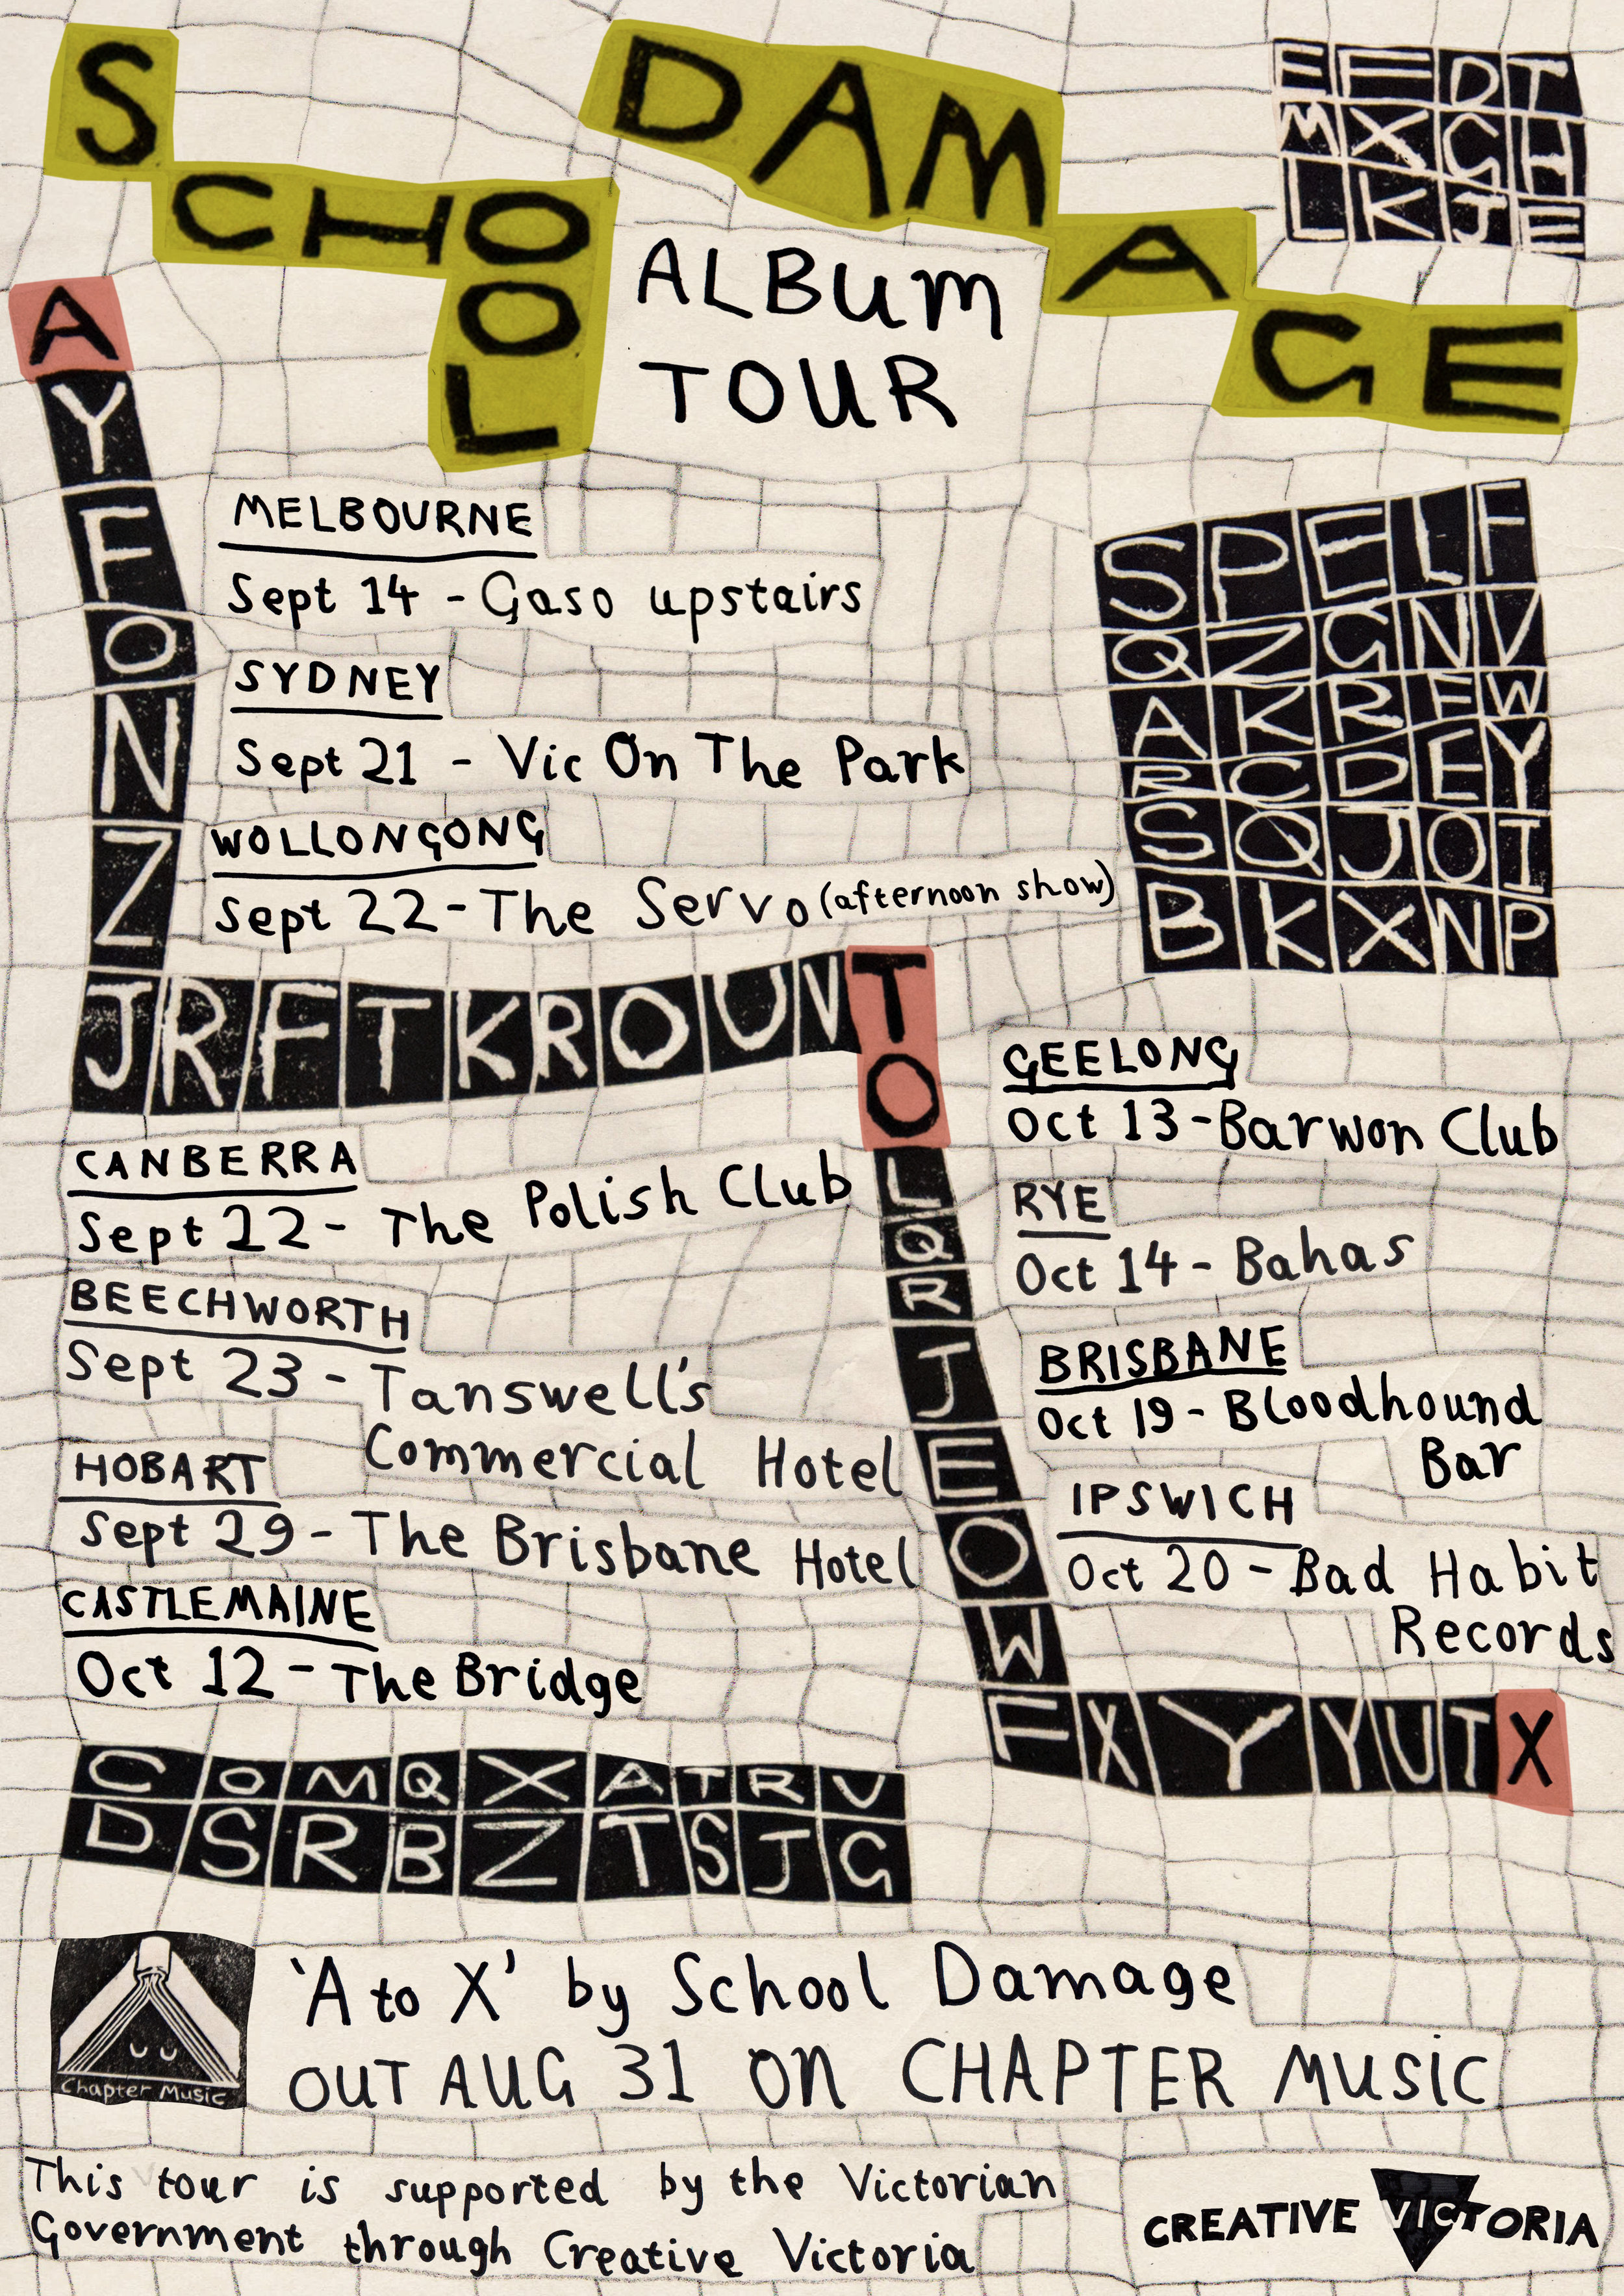 SCHOOL DAMAGE
ALBUM
TOUR
E F D T
M X G H
L K J E
A Y F Q N Z
J R F T K R O U N T
O L Q R J E O W
F X Y Y U T X
S P E L F
Q Z G N V
A K R F W
R C D E Y
S Q J O I
B K X N P
MELBOURNE
Sept 14 - Gaso upstairs
SYDNEY
Sept 21 - Vic On The Park
WOLLONGONG
Sept 22 - The Servo (afternoon show)
CANBERRA
Sept 22 - The Polish Club
BEECHWORTH
Sept 23 - Tanswell's
Commercial Hotel
HOBART
Sept 29 - The Brisbane Hotel
CASTLEMAINE
Oct 12 - The Bridge
GEELONG
Oct 13 - Barwon Club
RYE
Oct 14 - Bahas
BRISBANE
Oct 19 - Bloodhound
Bar
IPSWICH
Oct 20 - Bad Habit
Records
C O M Q X A T R V
D S R B Z T S J G
Chapter Music
'A to X' by School Damage
OUT AUG 31 ON CHAPTER MUSIC
This tour is supported by the Victorian
Government through Creative Victoria
CREATIVE VICTORIA